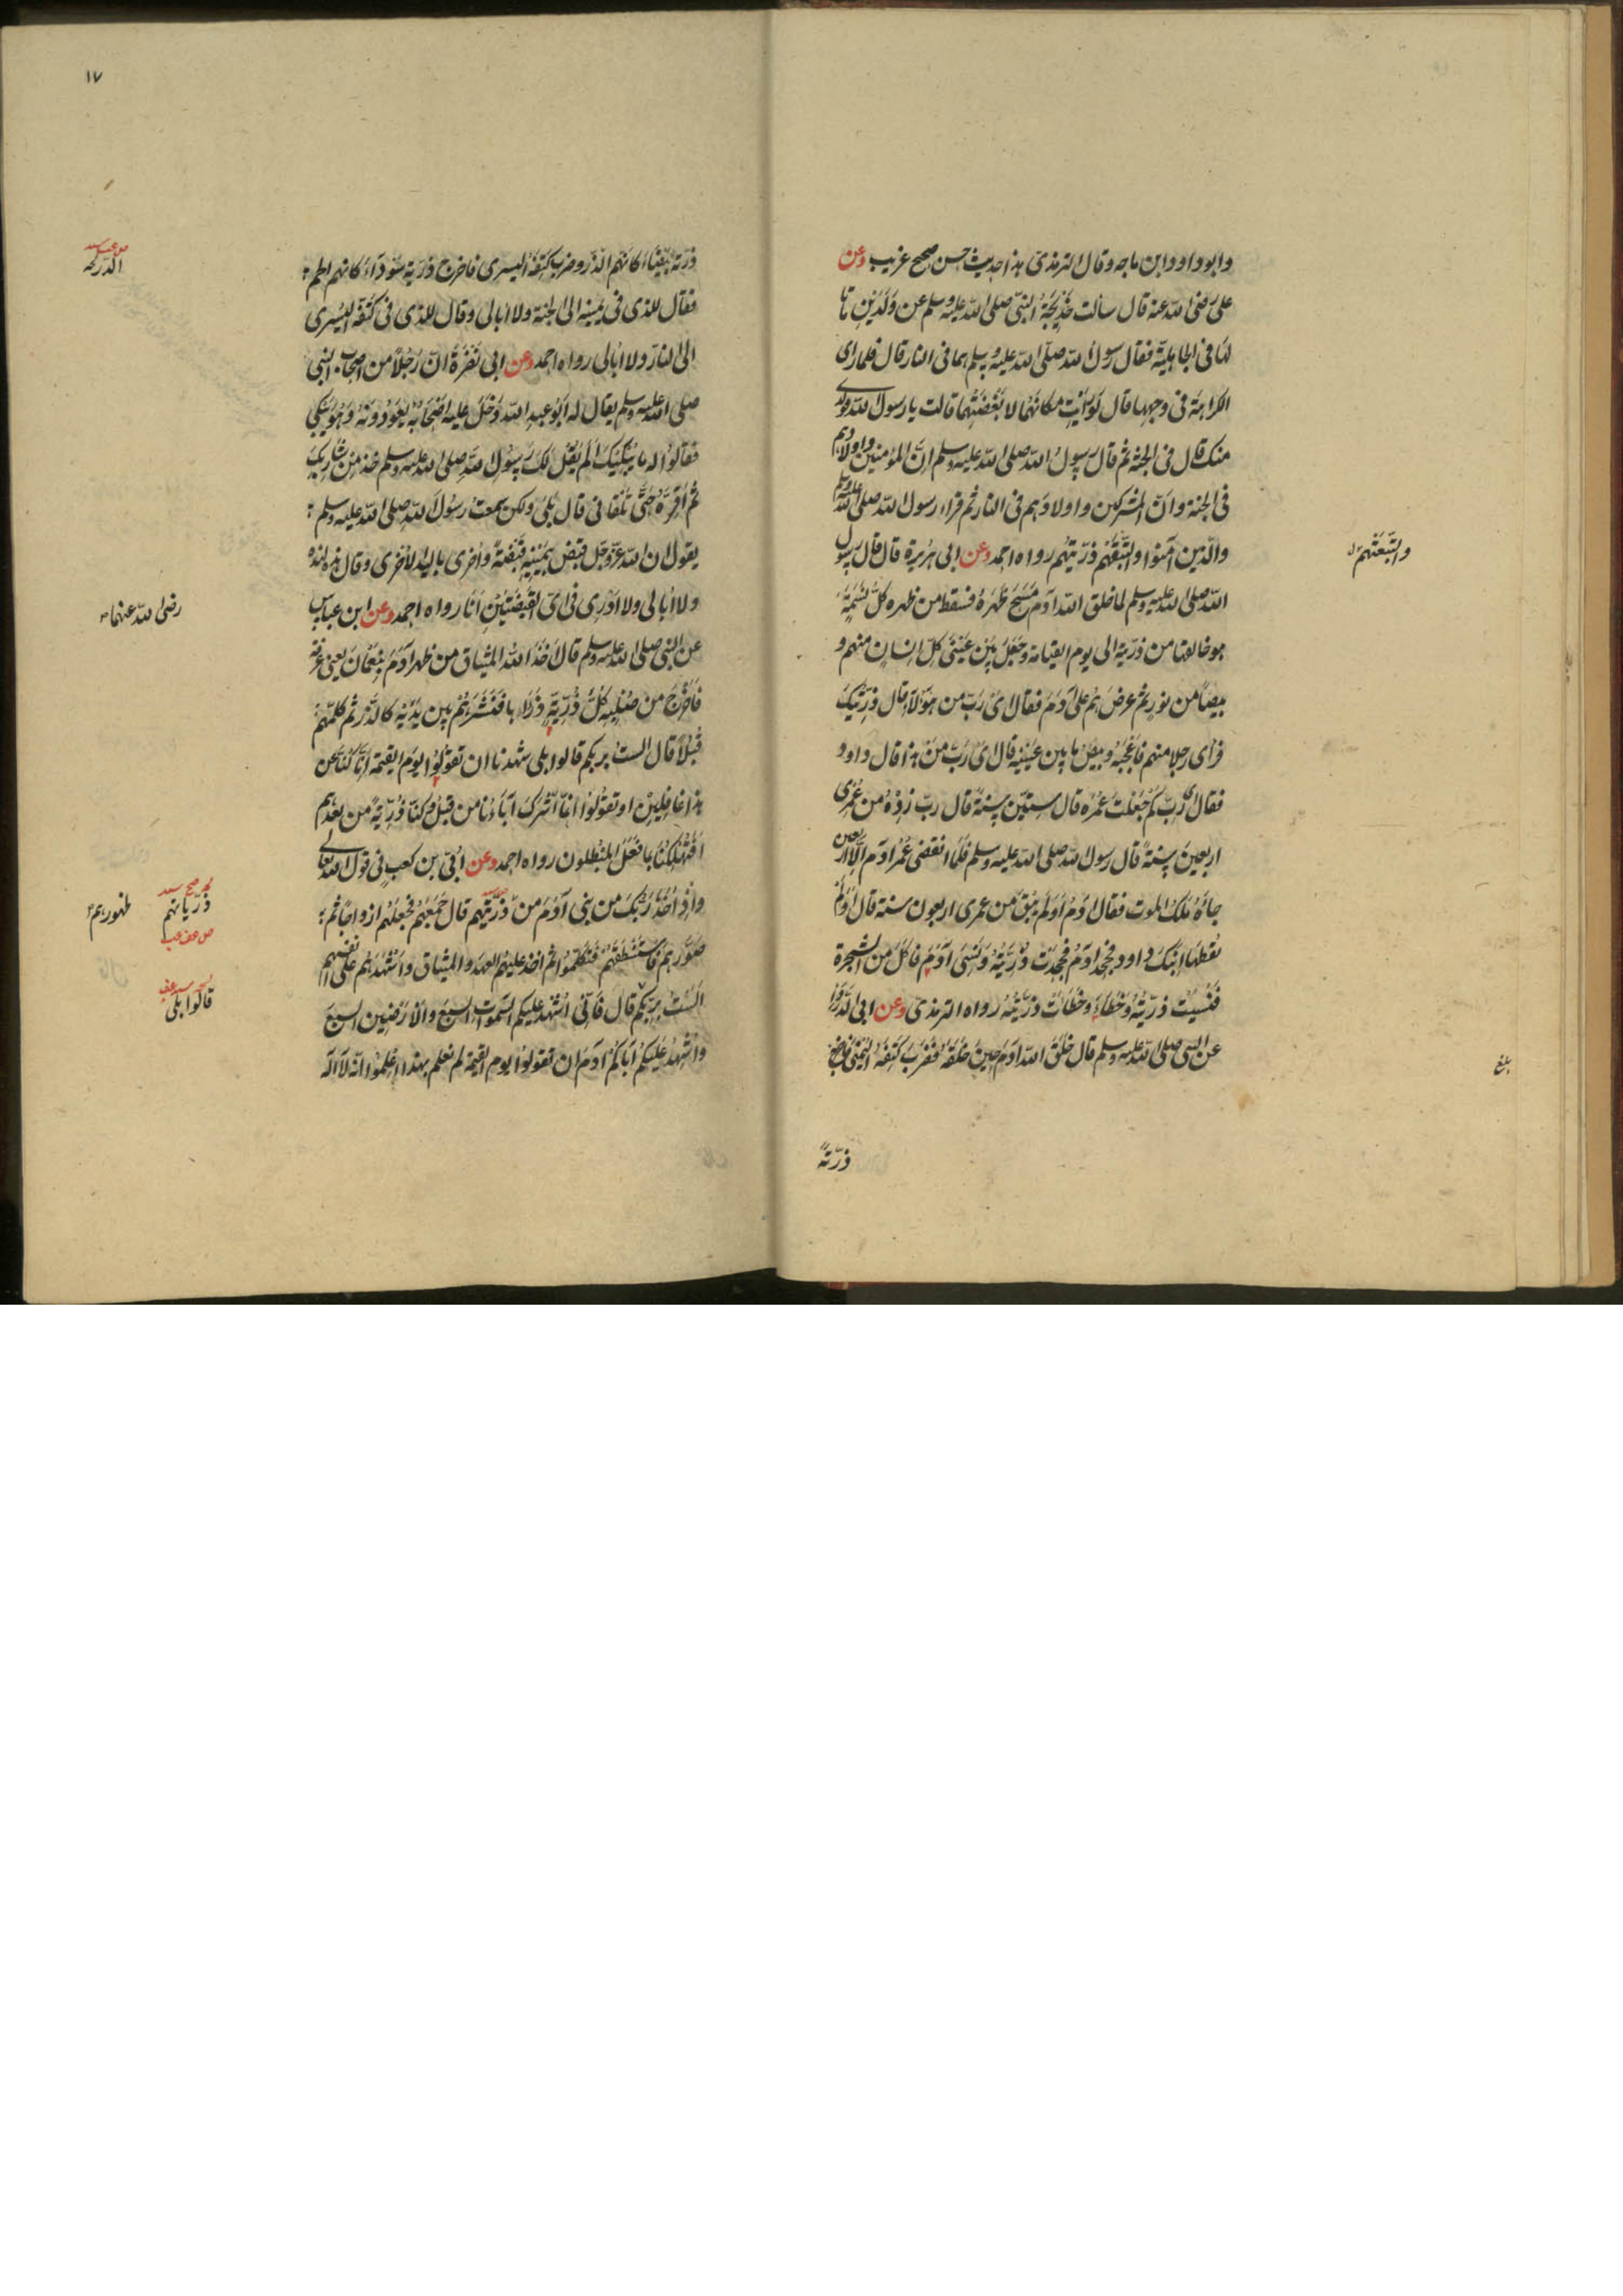 وابو داود وابن ماجه وقال الترمذى هذا حديث حسن صحيح غريب وعن
على رضى الله عنه قال سالت خديجة النبى صلى الله عليه وسلم عن ولدين ماتا
لها فى الجاهلية فقال رسول الله صلى الله عليه وسلم هما فى النار قال فلما راى
الكراهة فى وجهها قال لو رايت مكانهما لابغضتهما قالت يا رسول الله فولدى
منك قال فى الجنة ثم قال رسول الله صلى الله عليه وسلم ان المؤمنين واولادهم
فى الجنة وان المشركين واولادهم فى النار ثم قراء رسول الله صلى الله عليه وسلم
والذين آمنوا واتبعهم ذريتهم رواه احمد وعن ابى هريرة قال قال رسول
واتبعتهم
الله صلى الله عليه وسلم لما خلق الله ادم مسح ظهره فسقط من ظهره كل نسمة
هو خالقها من ذريته الى يوم القيامة وجعل بين عينى كل انسان منهم و
بيصا من نور ثم عرضهم على آدم فقال اى رب من هؤلاء قال ذريتك
فراى رجلا منهم فاعجبه وبيص ما بين عينيه قال اى رب من هذا قال داود
فقال اى رب كم جعلت عمره قال ستين سنة قال رب زده من عمرى
اربعين سنة قال رسول الله صلى الله عليه وسلم فلما انقضى عمر ادم الا اربعين
جاءه ملك الموت فقال ادم اولم يبق من عمرى اربعون سنة قال اولم
تعطها ابنك داود فجحد ادم فجحدت ذريته ونسى آدم فاكل من الشجرة
فنسيت ذريته وخطاء وخطات ذريته رواه الترمذى وعن ابى الدرداء
عن النبى صلى الله عليه وسلم قال خلق الله ادم حين خلقه فضرب كتفه اليمنى فاخرج
بلغ
ذرية
١٧
ذرية بيضاء كانهم الذر وضرب كتفه اليسرى فاخرج ذرية سوداء كانهم الحمم
فقال للذى فى يمينه الى الجنة ولا ابالى وقال للذى فى كتفه اليسرى
الى النار ولا ابالى رواه احمد وعن ابى نضرة ان رجلا من اصحاب النبى
صلى الله عليه وسلم يقال له ابو عبد الله دخل عليه اصحابه يعودونه وهو يبكى
فقالوا له ما يبكيك الم يقل لك رسول الله صلى الله عليه وسلم خذ من شاربك
ثم اقره حتى تلقانى قال بلى ولكن سمعت رسول الله صلى الله عليه وسلم
يقول ان الله عز وجل قبض بيمينه قبضة واخرى باليد الاخرى وقال هذه لهذه
ولا ابالى ولا ادرى فى اى القبضتين انا رواه احمد وعن ابن عباس
رضى الله عنهما
عن النبى صلى الله عليه وسلم قال اخذ الله الميثاق من ظهر ادم بنعمان يعنى عرفة
فاخرج من صلبه كل ذرية ذراها فنثرهم بين يديه كالذر ثم كلمهم
قبلا قال الست بربكم قالوا بلى شهدنا ان تقولوا يوم القيمة انا كنا عن
هذا غافلين او تقولوا انما اشرك آباؤنا من قبل وكنا ذرية من بعدهم
افتهلكنا بما فعل المبطلون رواه احمد وعن ابى بن كعب فى قول الله تعالى
واذ اخذ ربك من بنى آدم من ذريتهم قال جمعهم فجعلهم ازواجا ثم
ذرياتهم
ظهورهم
صورهم فاستنطقهم فتكلموا ثم اخذ عليهم العهد والميثاق واشهدهم على انفسهم
الست بربكم قال فانى اشهد عليكم السموات السبع والارضين السبع
قالوا بلى
واشهد عليكم اباكم آدم ان تقولوا يوم القيمة لم نعلم بهذا اعلموا انه لا اله